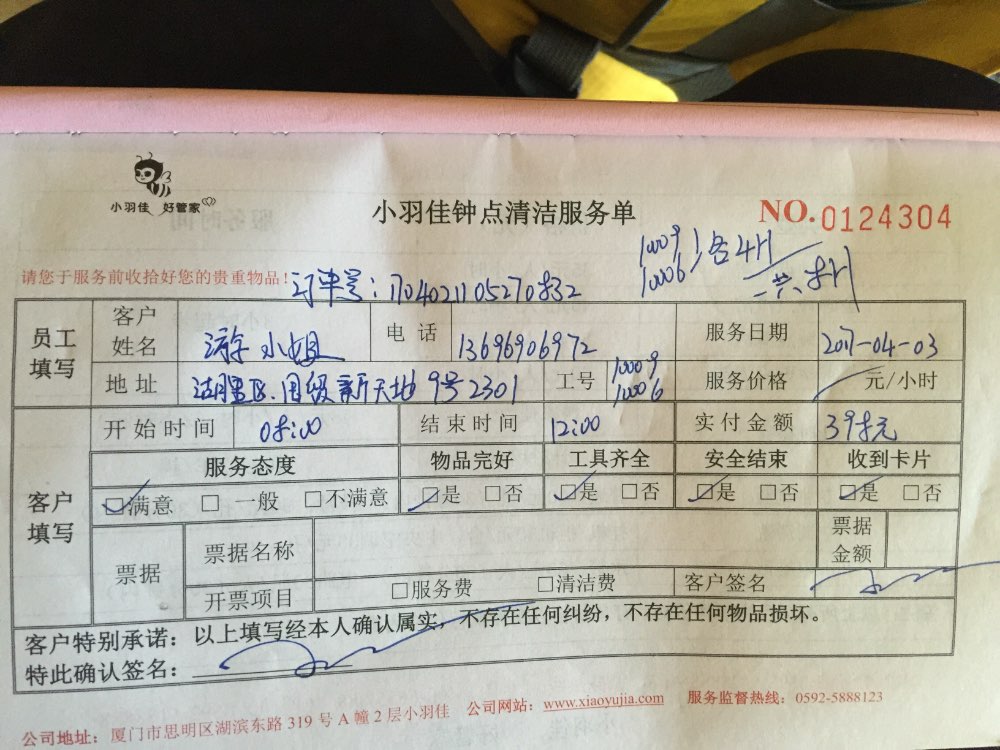 小羽佳 好管家
小羽佳钟点清洁服务单
NO.0124304
10009
10006
各4H
一共8H
请您于服务前收拾好您的贵重物品！
订单号：1704021105270832
员工填写
客户姓名
小姐
电话
13696906972
服务日期
2017-04-03
地址
湖里区.国贸新天地9号2301
工号
10009
10006
服务价格
元/小时
客户填写
开始时间
08:00
结束时间
12:00
实付金额
398元
服务态度
物品完好
工具齐全
安全结束
收到卡片
☑满意 □ 一般 □不满意
☑是 □否
☑是 □否
☑是 □否
☑是 □否
票据
票据名称
票据金额
开票项目
□服务费 □清洁费
客户签名
客户特别承诺：以上填写经本人确认属实，不存在任何纠纷，不存在任何物品损坏。
特此确认签名：
公司地址：厦门市思明区湖滨东路 319 号 A 幢 2 层小羽佳 公司网站：www.xiaoyujia.com 服务监督热线：0592-5888123